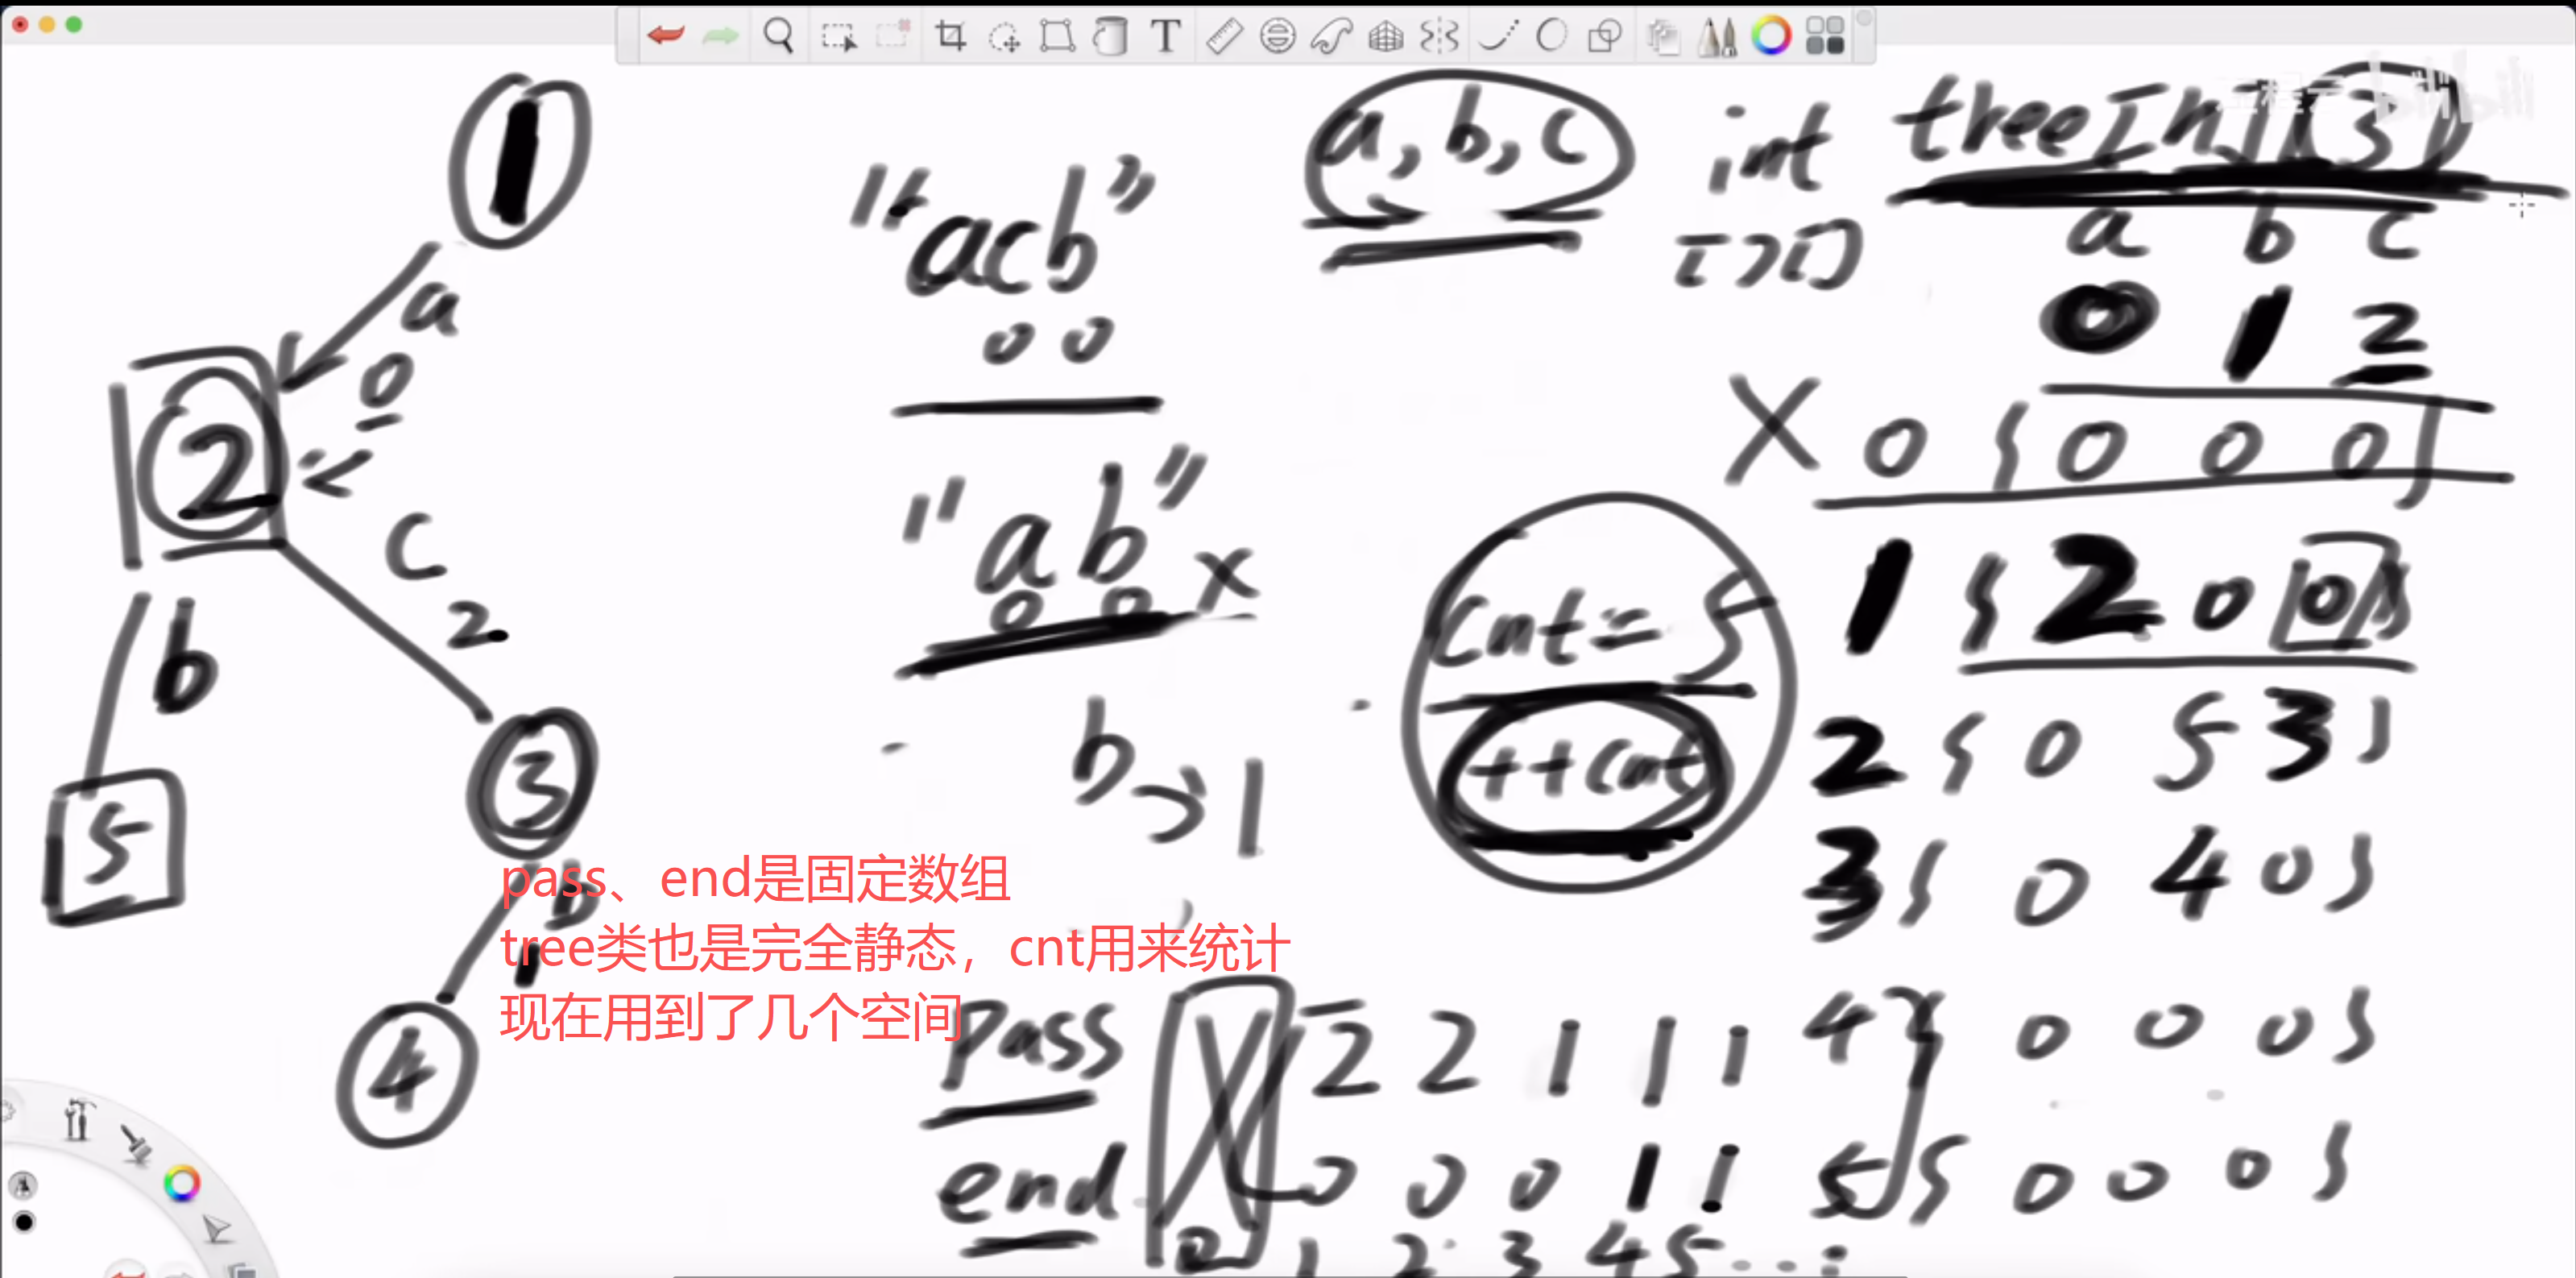 1
a
0
2
c
2
b
5
3
b
1
4
"acb"
0 0
"ab" x
0 0
b → 1
a, b, c
int
[ ] [ ]
cnt = 5
++cnt
a b c
0 1 2
X 0 { 0 0 0 }
1 { 2 0 0 }
2 { 0 5 3 }
3 { 0 4 0 }
4 { 0 0 0 }
5 { 0 0 0 }
pass、end是固定数组
tree类也是完全静态，cnt用来统计
现在用到了几个空间
pass 2 2 1 1 1
end 0 0 0 1 1
0 1 2 3 4 5 . . .
bilibili